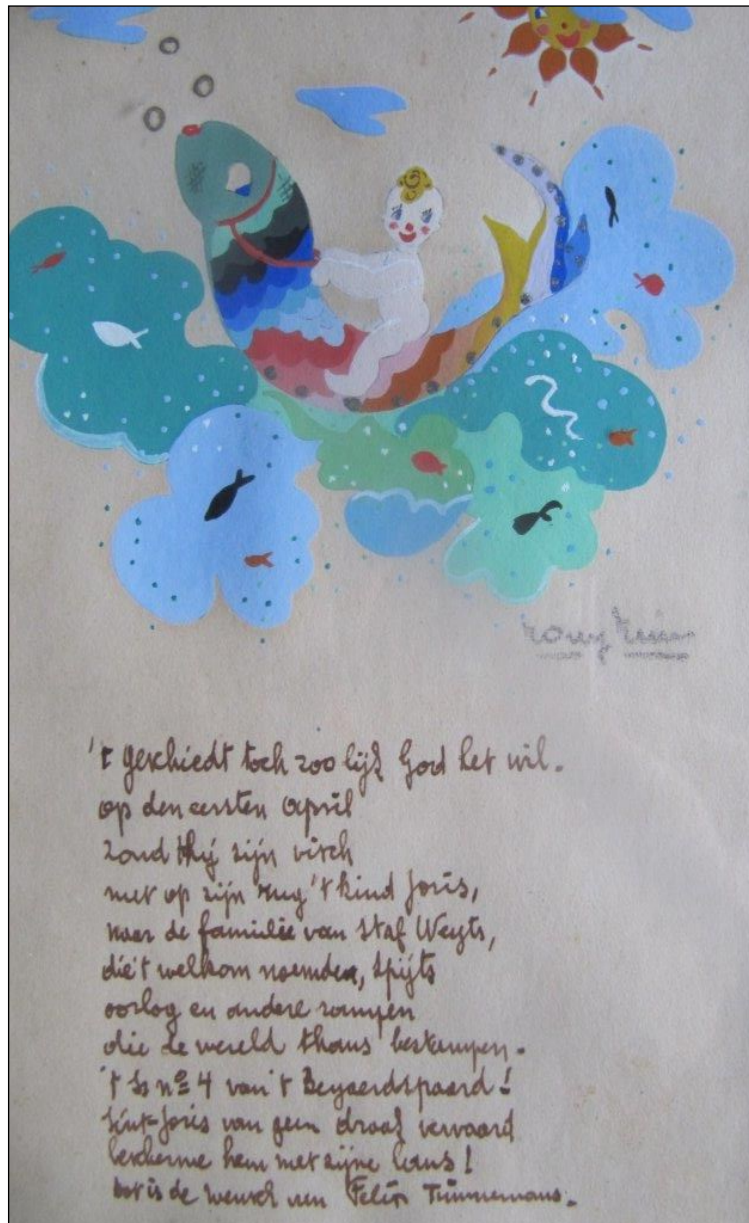 't geschiedt toch zoo lijk God het wil.
op den eersten April
zond Hij zijn visch
met op zijn rug 't kind Joris,
naar de familie van Staf Weyts,
die 't welkom noemden, spijts
oorlog en andere rampen
die de wereld thans bestampen.
't Is nº 4 van 't Beyaerdspaard!
Sint-Joris van geen draak vervaard
bescherme hem met zijne lans!
dat is de wensch van Felix Timmermans.